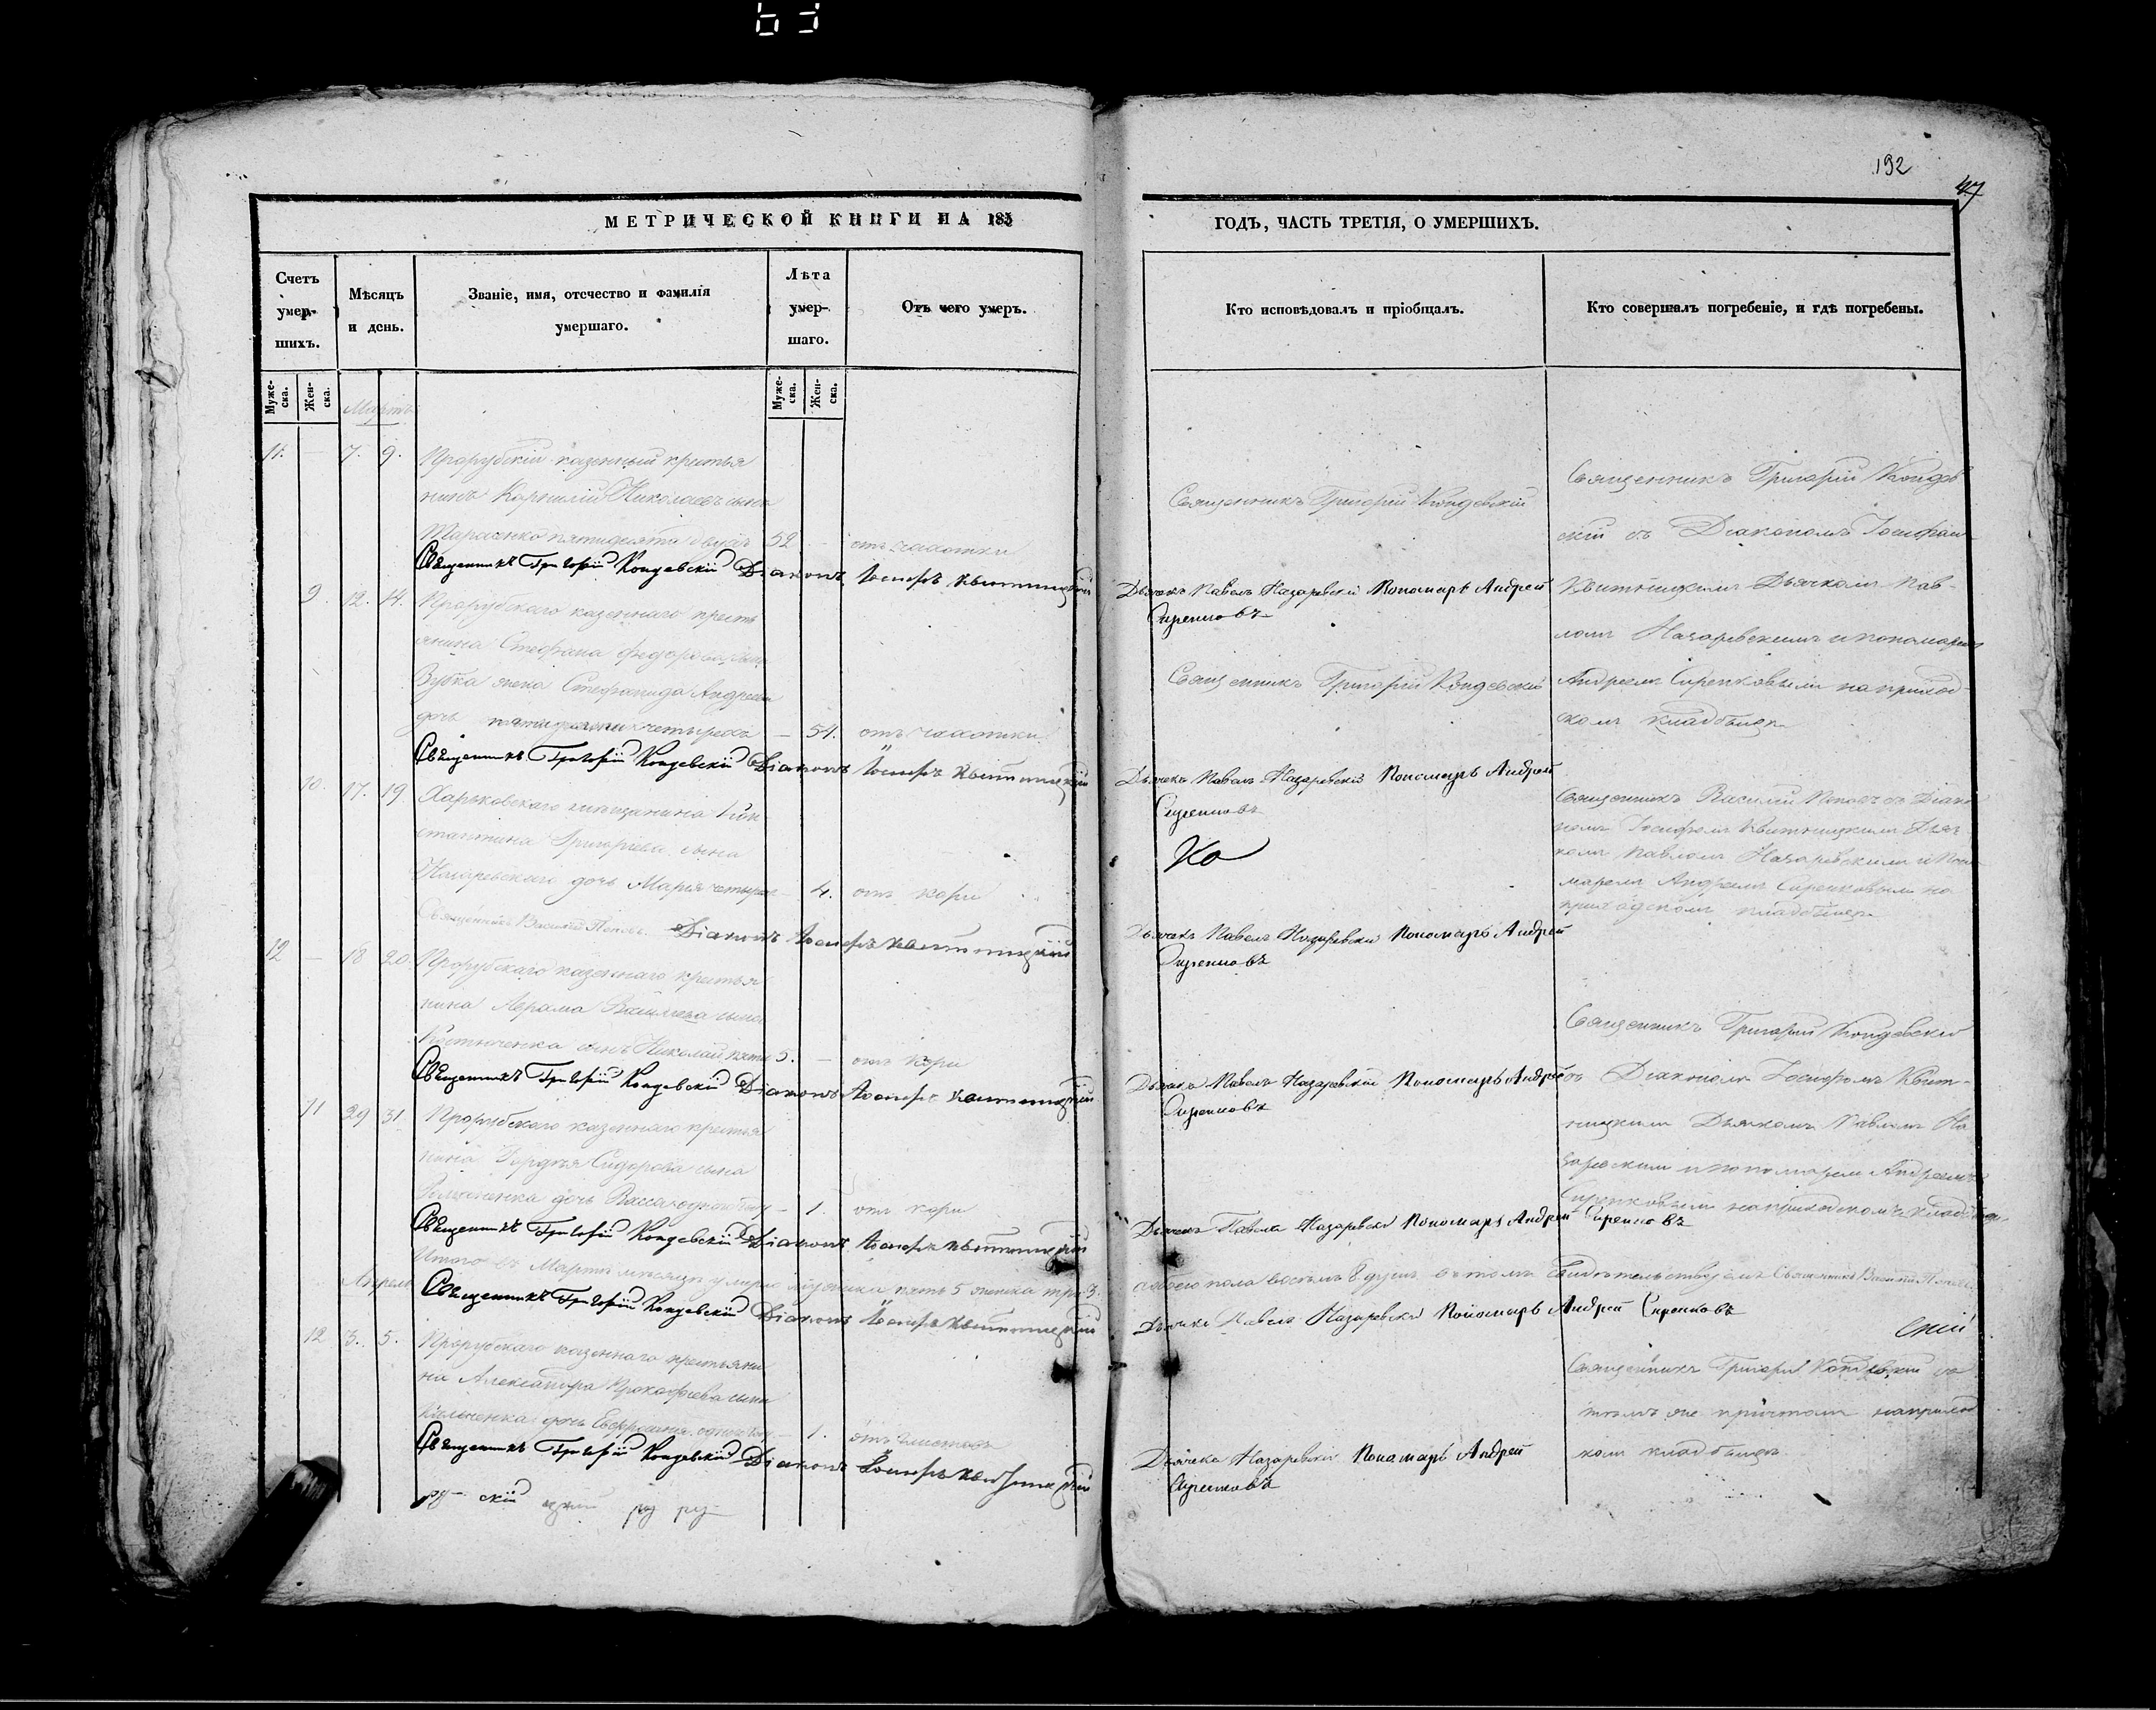 192
47
МЕТРИЧЕСКОЙ КНИГИ НА 185
ГОДЪ, ЧАСТЬ ТРЕТІЯ, О УМЕРШИХЪ.
Счетъ умер-шихъ.
Мѣсяцъ и день.
Званіе, имя, отечество и фамилія умершаго.
Лѣта умер-шаго.
Отъ чего умеръ.
Кто исповѣдовалъ и пріобщалъ.
Кто совершалъ погребеніе, и гдѣ погребены.
Муже-ска.
Жен-ска.
Муже-ска.
Жен-ска.
Мартъ
11. — 7. 9. Прорубскій казенный крестья
нинъ Корнилій Николаевъ сынъ
Тарасенко пятидесяти двухъ 52 — отъ чахотки
Священникъ Григорій Кондевскій
Священникъ Григорій Кондев
скій съ Діакономъ Іосифомъ
Священникъ Григорій Кондевскій Діаконъ Іосифъ Квитницкій Дьячекъ Павелъ Назаревскій Пономарь Андрей
Сиренковъ
Квитницкимъ Дьячкомъ Пав-
ломъ Назаревскимъ и пономаремъ
Андреемъ Сиренковымъ на приход
скомъ кладбищѣ
9. 12. 14. Прорубскаго казеннаго кресть
янина Стефана Федорова сына
Зубка жена Стефанида Андреева
дочь пятидесяти четырехъ — 54. отъ чахотки
Священникъ Григорій Кондевскій
Священникъ Григорій Кондевскій Діаконъ Іосифъ Квитницкій Дьячекъ Павелъ Назаревскій Пономарь Андрей
Сиренковъ
10. 17. 19. Харьковскаго мѣщанина Кон
стантина Григорьева сына
дочь Марія четырехъ — 4. отъ кори
Священникъ Василій Поповъ съ Діако
номъ Іосифомъ Квитницкимъ Дьяч
комъ Павломъ Назаревскимъ и Поно
маремъ Андреемъ Сиренковымъ на
приходскомъ кладбищѣ
Священникъ Василій Поповъ. Діаконъ Іосифъ Квитницкій Дьячекъ Павелъ Назаревскій Пономарь Андрей
Сиренковъ
12 — 18 20. Прорубскаго казеннаго крестья
нина Аврама Васильева сына
сынъ Николай пяти 5. — отъ кори
Священникъ Григорій Кондевскій
Священникъ Григорій Кондевскій Діаконъ Іосифъ Квитницкій Дьячекъ Павелъ Назаревскій Пономарь Андрей
Сиренковъ
съ Діакономъ Іосифомъ Квит-
ницкимъ Дьячкомъ Павломъ На
заревскимъ и пономаремъ Андреемъ
Сиренковымъ на приходскомъ кладбищѣ
11 29 31. Прорубскаго казеннаго крестья
нина Гордѣя Сидорова сына
дочь Васса — 1. отъ кори
Священникъ Григорій Кондевскій Діаконъ Іосифъ Квитницкій Дьячекъ Павелъ Назаревскій Пономарь Андрей Сиренковъ
Итого въ Мартѣ мѣсяцѣ умерло мужеска пять 5 женска три 3.
обоего пола восемь 8 душъ въ томъ свидѣтельствуемъ Священникъ Василій Поповъ
Апрель
Священникъ Григорій Кондевскій Діаконъ Іосифъ Квитницкій Дьячекъ Павелъ Назаревскій Пономарь Андрей Сиренковъ
12 3. 5. Прорубскаго казеннаго крестьяни
на Александра Прокофіева сына
дочь — 1.
Священникъ Григорій Кондевскій
кладбищѣ
Священникъ Григорій Кондевскій Діаконъ Іосифъ Квитницкій Дьячекъ Назаревскій Пономарь Андрей
Сиренковъ